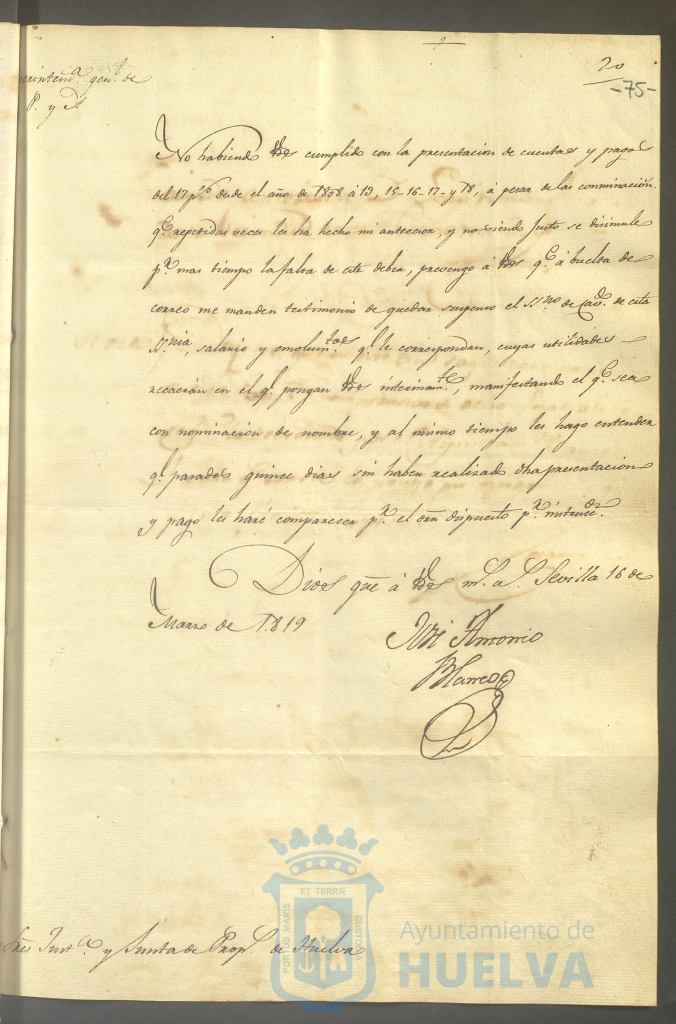 20
-75-
perintend.ª gen.l de
P. y A
No habiendo Vdes cumplido con la presentacion de cuentas y pago
del 17 p.% desde el año de 1808 á 13, 15-16-17- y 18, á pesar de las conminacion.
q.e repetidas veces les ha hecho mi antecesor, y no siendo justo se disimule
p.r mas tiempo la falta de este deber, prevengo á Vdes q.e á buelta de
correo me manden testimonio de quedar suspenso el SS.no de Cav.do de esta
SS.nia, salario y emolum.tos q.e le correspondan, cuyas utilidades
recaerán en el q.e pongan Vdes interinam.te, manifestando el q.e sea
con nominacion de nombre, y al mismo tiempo les hago entender
q.e pasados quince dias sin haber realizado dha presentacion
y pago les haré comparecer p.r el orn dispuesto p.r instrucc.on
Dios gue á Vdes m.s a.s Sevilla 16 de
Marzo de 1819
José Antonio
Blanco
Sres Just.ª y Junta de Prop.s de Huelva
PORTUS MARIS ET TERRÆ CUSTODIA
Ayuntamiento de
HUELVA